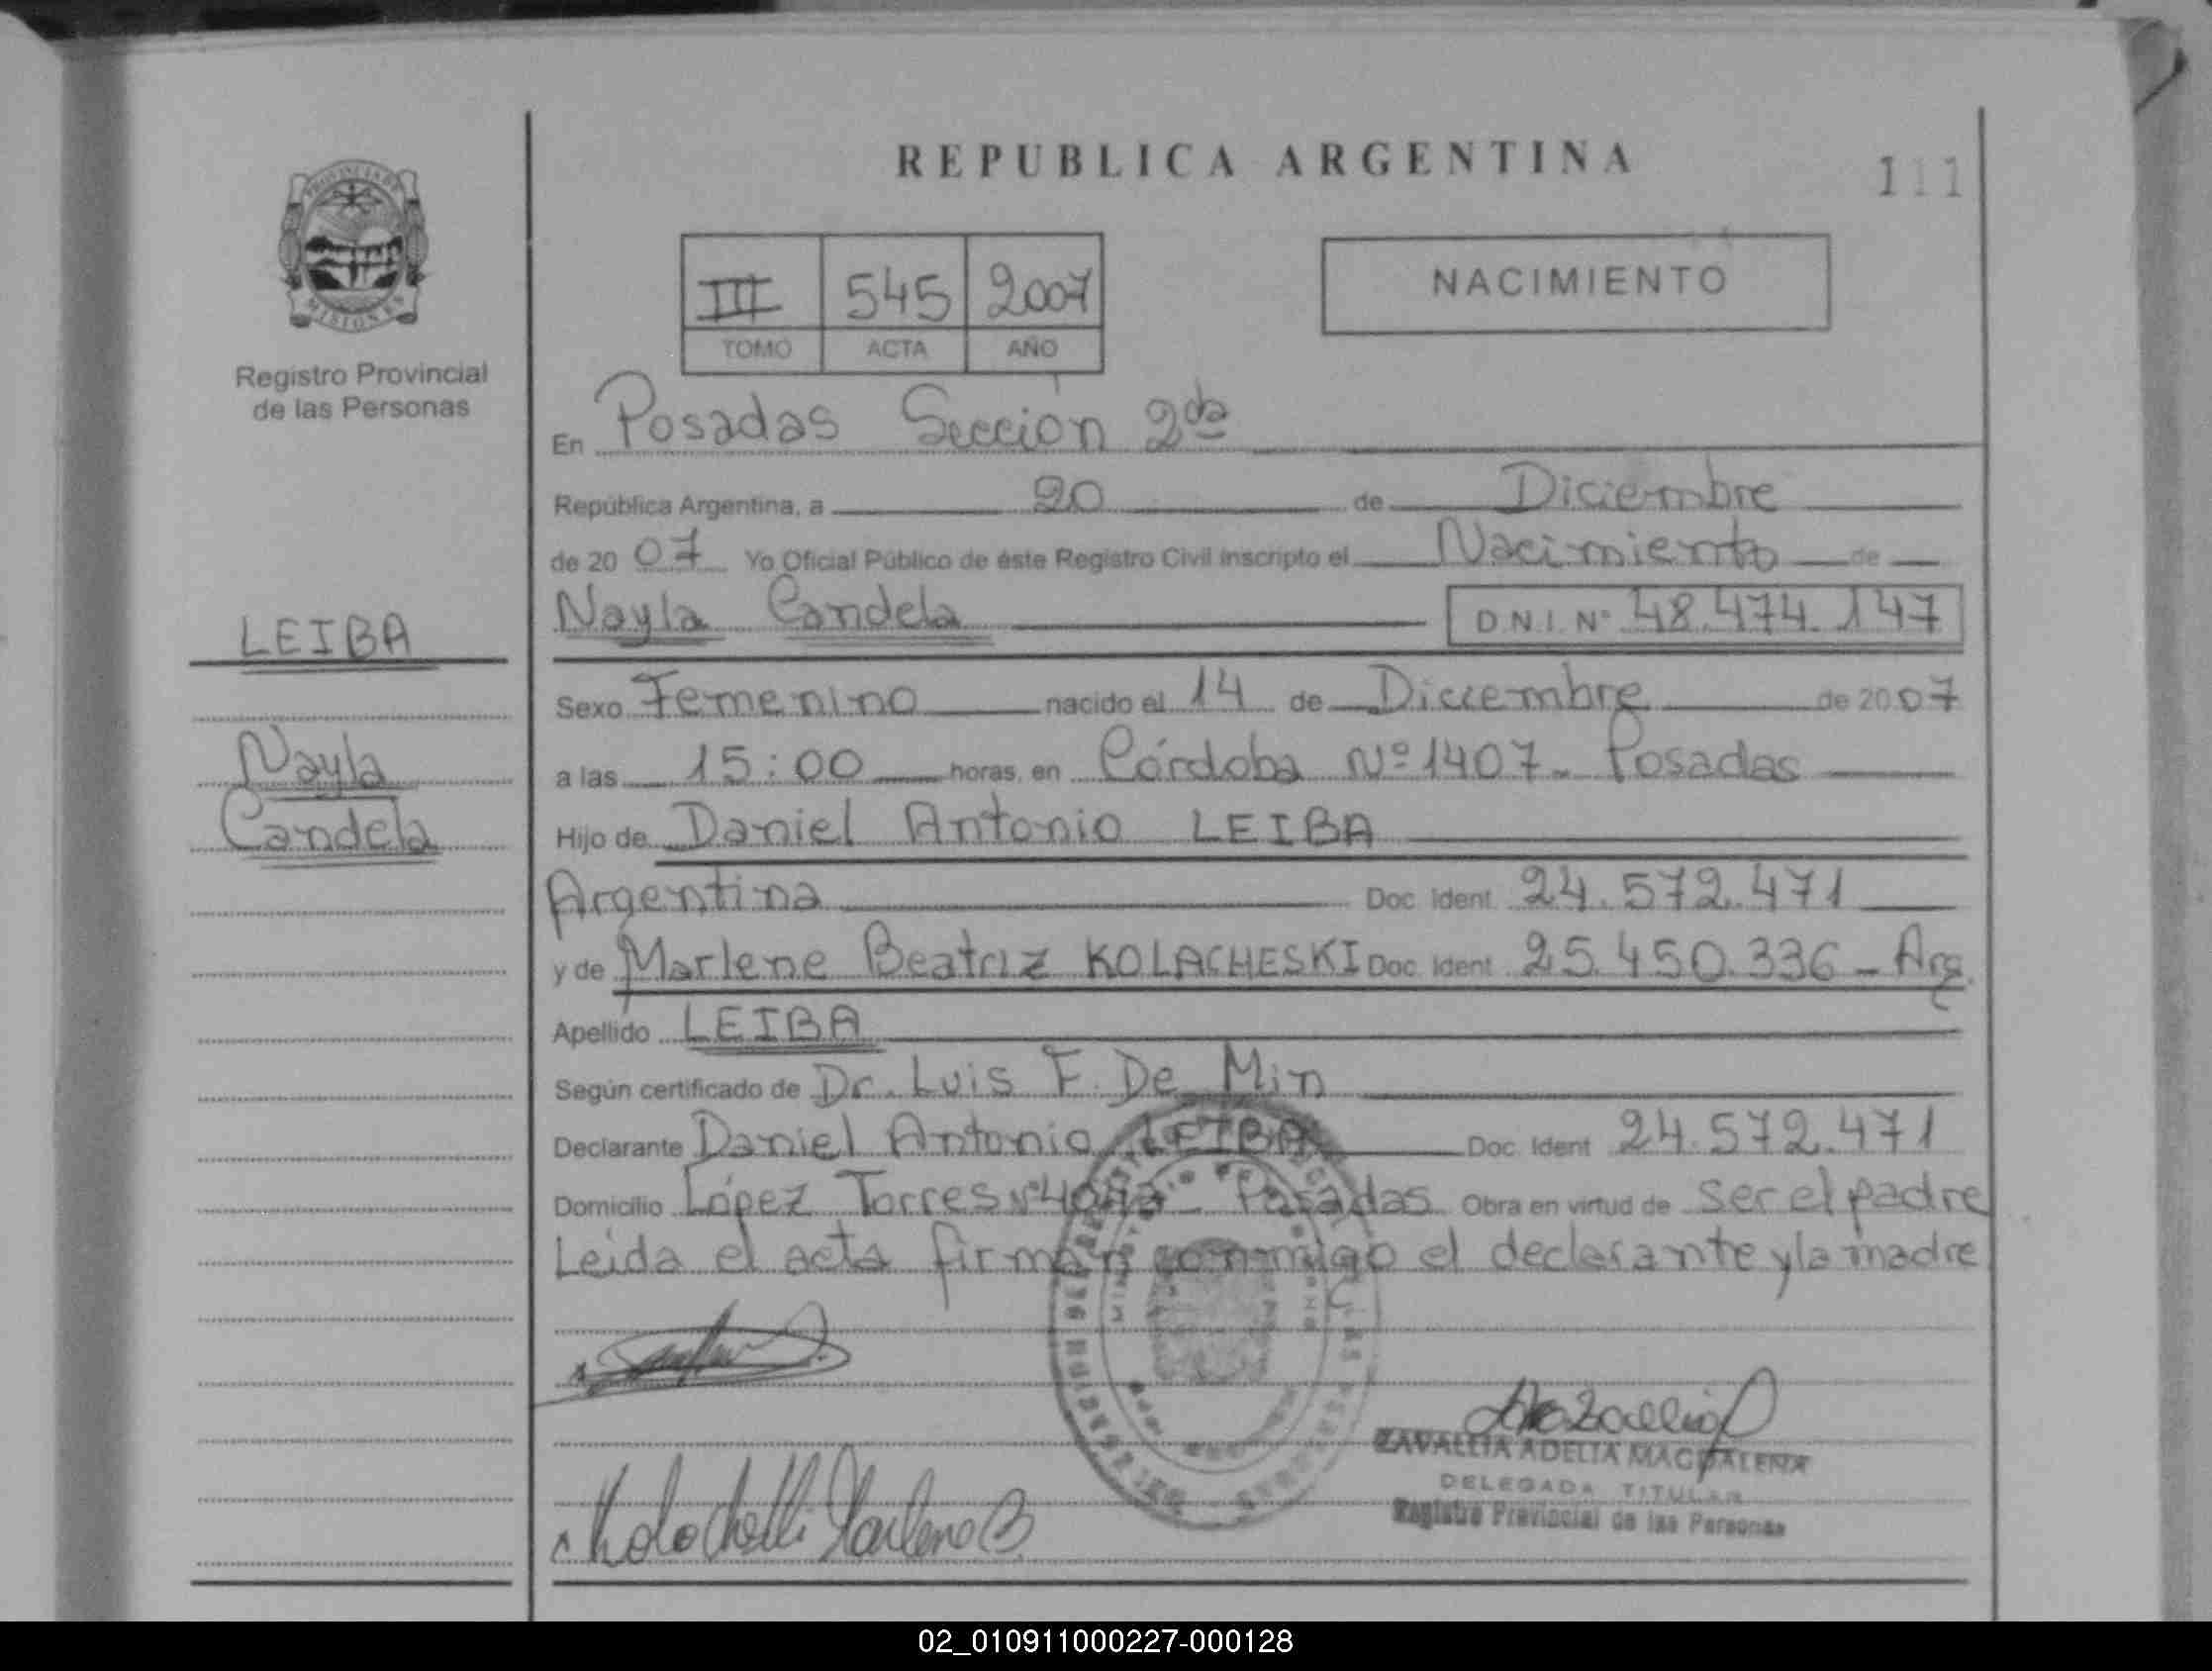 REPUBLICA ARGENTINA
111
PROVINCIA DE MISIONES
Registro Provincial
de las Personas
III 545 2007
TOMO ACTA AÑO
NACIMIENTO
En Posadas Sección 2da
República Argentina, a 20 de Diciembre
de 20 07 Yo Oficial Público de éste Registro Civil inscripto el Nacimiento de
Nayla Candela D.N.I. Nº 48.474.147
LEIBA
Nayla
Candela
Sexo Femenino nacido el 14 de Diciembre de 20 07
a las 15:00 horas, en Córdoba Nº 1407 - Posadas
Hijo de Daniel Antonio LEIBA
Argentina Doc. Ident. 24.572.471
y de Marlene Beatriz KOLACHESKI Doc. Ident. 25.450.336 - Arg.
Apellido LEIBA
Según certificado de Dr. Luis F. De Min
Declarante Daniel Antonio LEIBA Doc. Ident. 24.572.471
Domicilio López Torres Nº - Posadas Obra en virtud de ser el padre
Leida el acta firman conmigo el declarante y la madre
Marlene B.
ZAVALLIA ADELIA MAGDALENA
DELEGADA TITULAR
Registro Provincial de las Personas
02_010911000227-000128